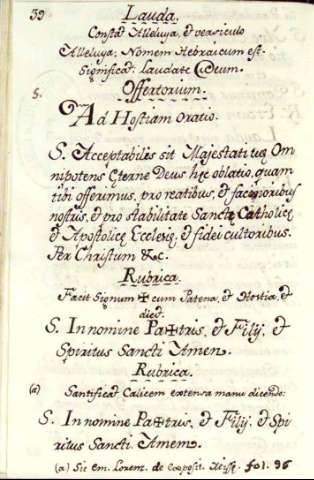 39 Lauda.
Constat Alleluya, et versiculo
Alleluya; Nomen Hebraicum est:
Significat: Laudate Deum.
§. Offertorium.
Ad Hostiam oratio.
S. Acceptabiles sit Majestati tuę Om-
nipotens Ęterne Deus hęc oblatio, quam
tibi offerimus, pro reatibus, et facinoribus
nostris, et pro stabilitate Sanctę Catholicę
et Apostolicę Ecclesię, et fidei cultoribus.
Per Christum &c.
Rubrica.
Facit Signum ✠ cum Patena, et Hostia, et
dicit.
S. In nomine Pa✠tris, et Filij, et
Spiritus Sancti Amen.
Rubrica.
(a) Santificat Calicem extensa manu dicendo:
S. In nomine Pa✠tris, et Filij, et Spi-
ritus Sancti. Amem.
(a) Sic em. Lorent. de Exposit. Misse. fol. 96